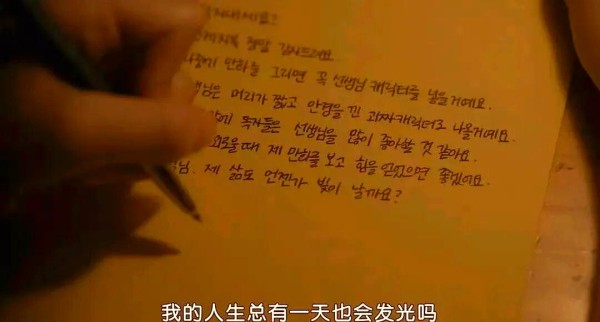 지내세요?
정말 감사드려요
만화를 그리면 꼭 선생님 캐릭터를 넣을거예요.
님은 머리가 짧고 안경을 낀 괴짜캐릭터로 나올거예요.
독자들은 선생님을 많이 좋아할 것 같아요.
외로울 때 제 만화를 보고 힘을 얻었으면 좋겠어요.
님. 제 삶도 언젠가 빛이 날까요?
我的人生总有一天也会发光吗